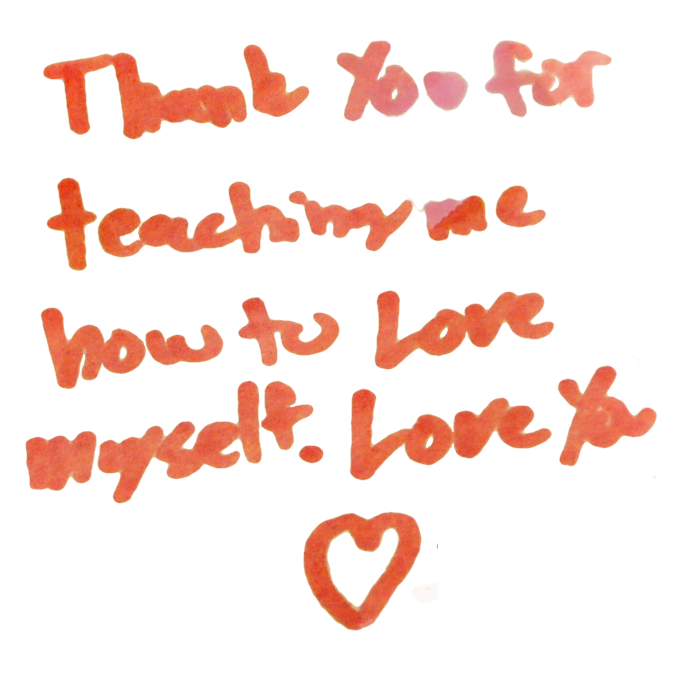 Thank You for
teaching me
how to Love
myself. Love You